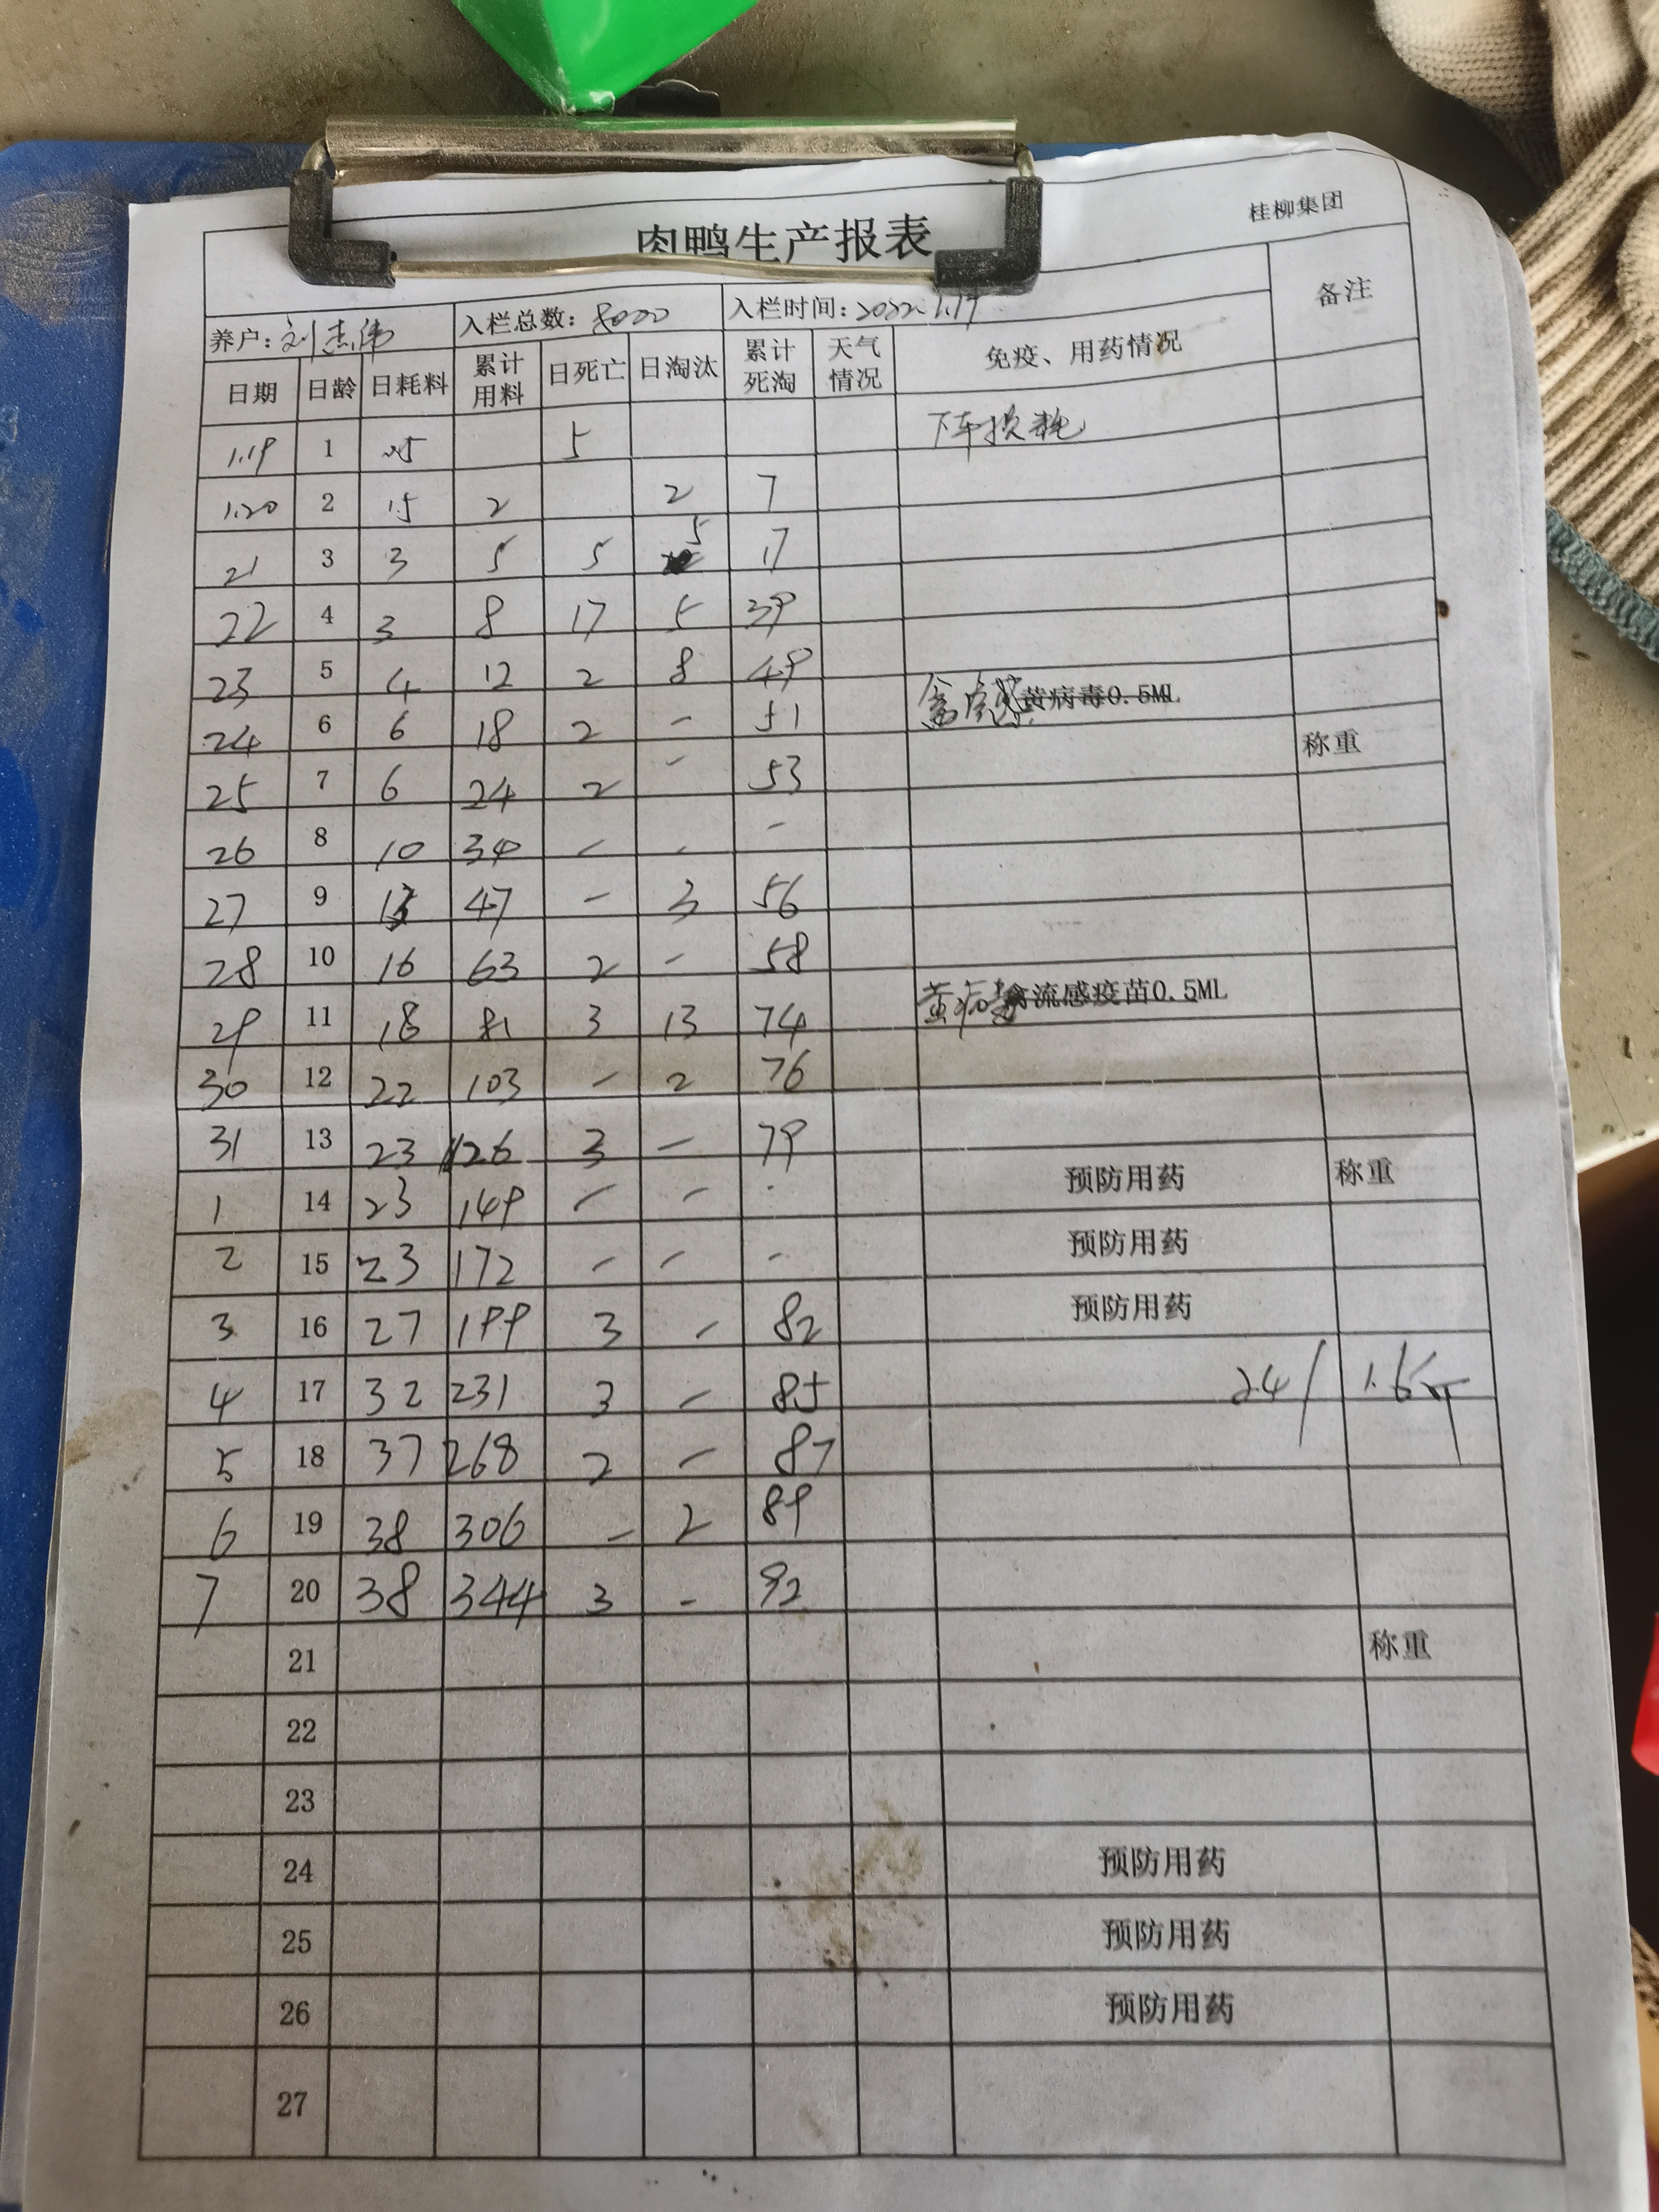 桂柳集团
肉鸭生产报表
养户: 刘杰伟 入栏总数: 8000 入栏时间: 2022.1.19 备注
日期 日龄 日耗料 累计用料 日死亡 日淘汰 累计死淘 天气情况 免疫、用药情况
1.19 1 5 下车损耗
1.20 2 1.5 2 2 7
21 3 3 5 5 5 17
22 4 3 8 17 5 39
23 5 4 12 2 8 49
24 6 6 18 2 - 51 黄病毒0.5ML
25 7 6 24 2 - 53 称重
26 8 10 34 - - -
27 9 13 47 - 3 56
28 10 16 63 2 - 58
29 11 18 81 3 13 74 黄病毒禽流感疫苗0.5ML
30 12 22 103 - 2 76
31 13 23 126 3 - 79
1 14 23 149 - - - 预防用药 称重
2 15 23 172 - - - 预防用药
3 16 27 199 3 - 82 预防用药
4 17 32 231 3 - 85 2.4/ 1.6斤
5 18 37 268 2 - 87
6 19 38 306 - 2 89
7 20 38 344 3 - 92
21 称重
22
23
24 预防用药
25 预防用药
26 预防用药
27